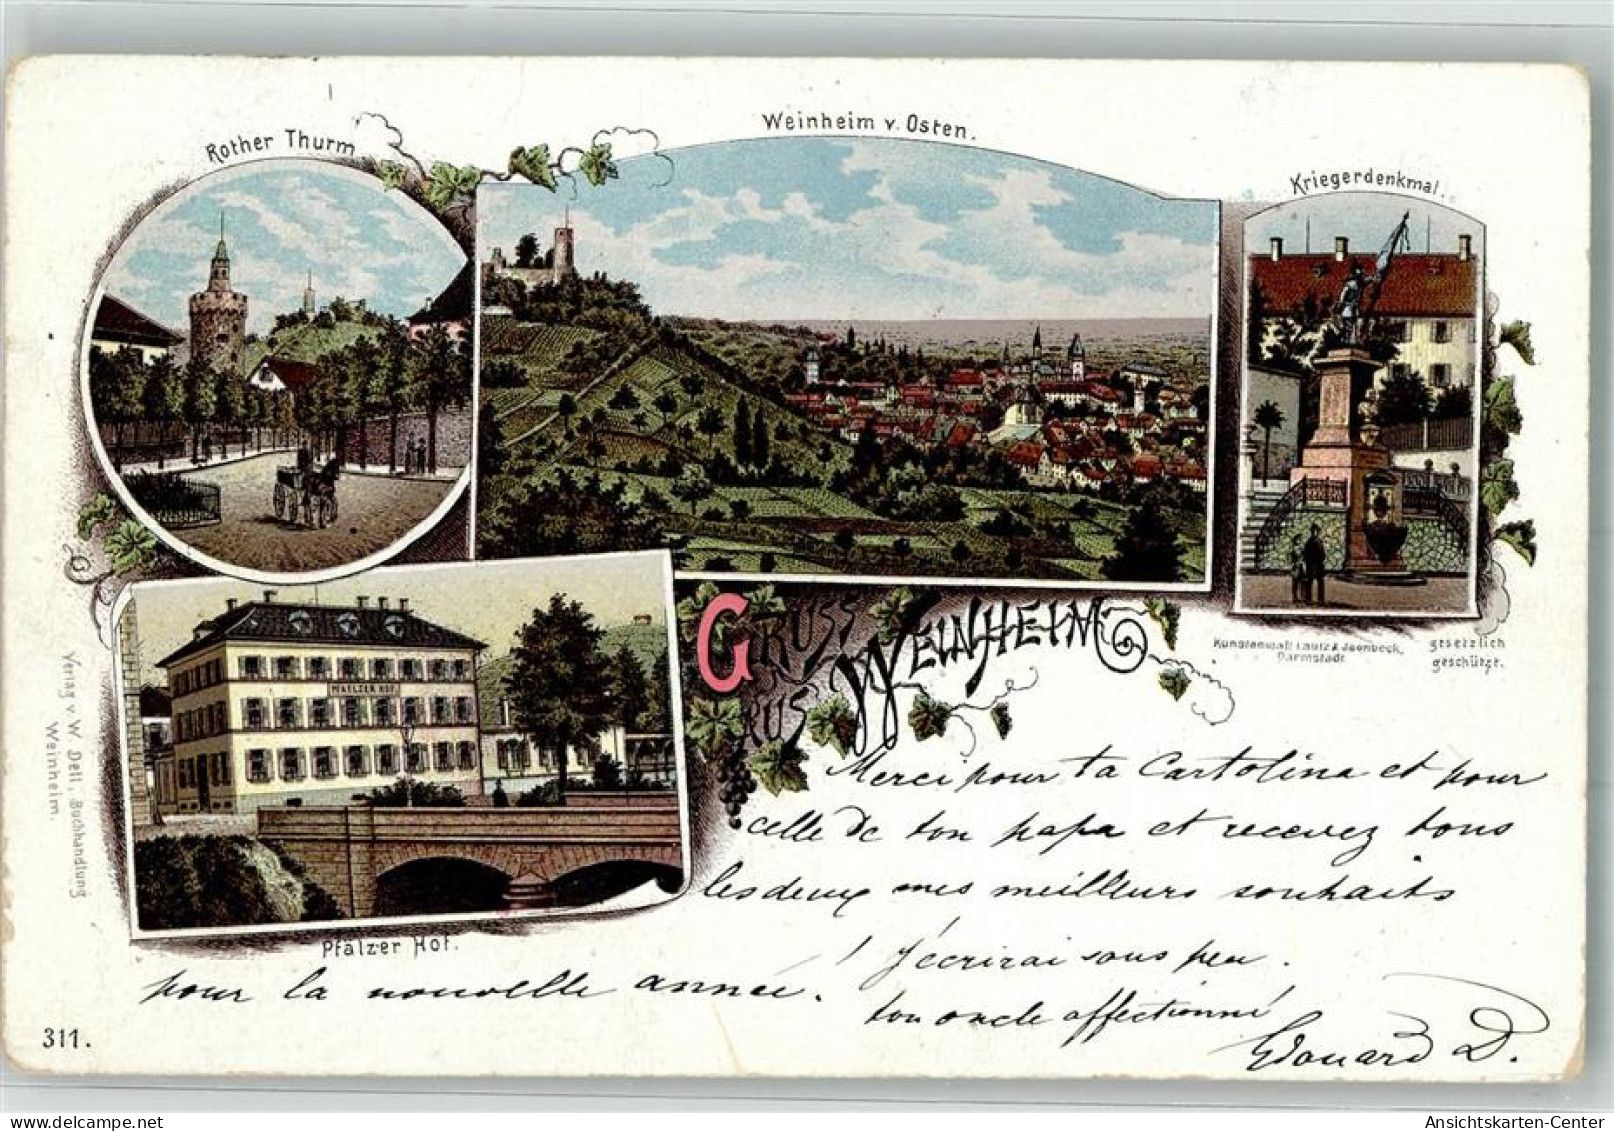 Rother Thurm
Weinheim v. Osten.
Kriegerdenkmal.
PFAELZER HOF
GRUSS
AUS WEINHEIM
Kunstanstalt Lautz & Isenbeck,
Darmstadt
gesetzlich
geschützt.
Verlag v. W. Dell, Buchhandlung
Weinheim.
Pfälzer Hof.
Merci pour ta Cartolina et pour
celle de ton papa et recevez tous
les deux mes meilleurs souhaits
pour la nouvelle année. ! J'écrirai sous peu.
ton oncle affectionné
Edouard D.
311.
AnsichtsKarten-Center